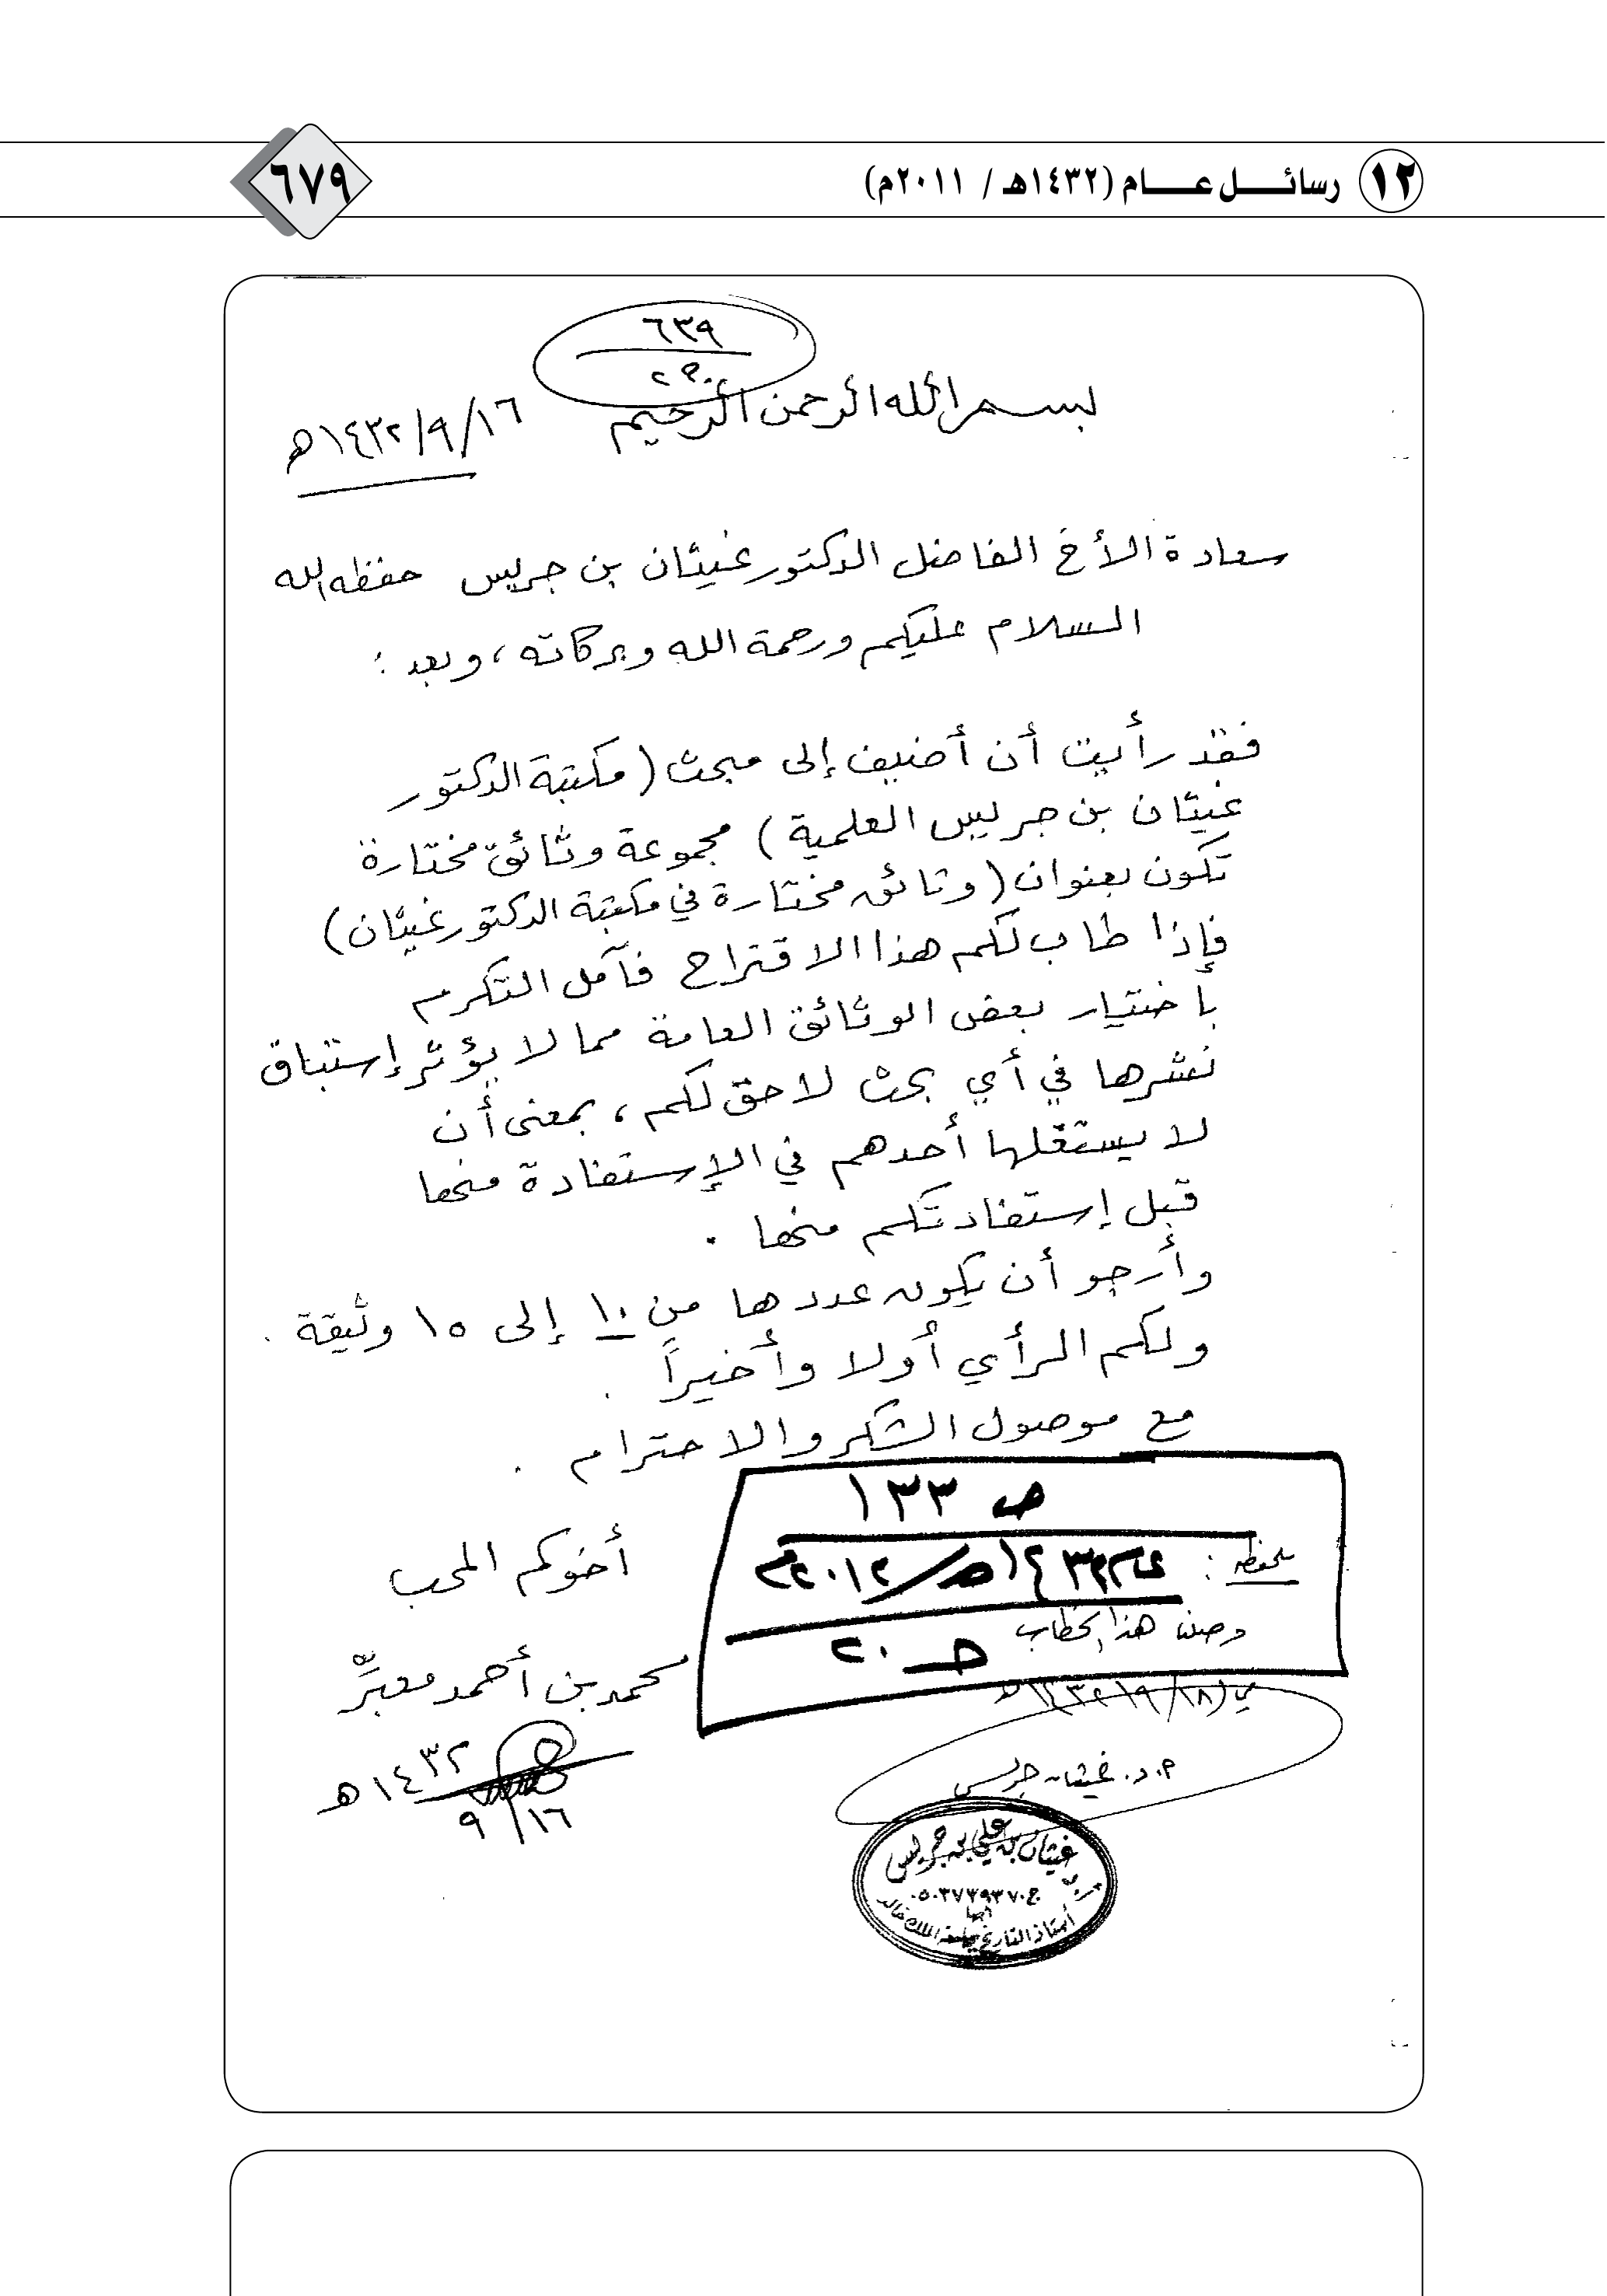 ١٢ رسائل عام (١٤٣٢هـ / ٢٠١١م)
٦٧٩
٦٣٩
٢٠
بسم الله الرحمن الرحيم
١٦/٩/١٤٣٢هـ
سعادة الأخ الفاضل الدكتور غيثان بن جريس حفظه الله
السلام عليكم ورحمة الله وبركاته ، وبعد :
فقد رأيت أن أضيف إلى مبحث ( مكتبة الدكتور
غيثان بن جريس العلمية ) مجموعة وثائق مختارة
تكون بعنوان ( وثائق مختارة في مكتبة الدكتور غيثان )
فإذا طاب لكم هذا الاقتراح فآمل التكرم
بأختيار بعض الوثائق العامة مما لا يؤثر إستباق
نشرها في أي بحث لاحق لكم ، بمعنى أن
لا يستغلها أحدهم في الإستفادة منها
قبل إستفادتكم منها .
وأرجو أن يكون عددها من ١٠ إلى ١٥ وثيقة .
ولكم الرأي أولا وأخيراً .
مع موصول الشكر والاحترام .
أخوكم المحب
محمد بن أحمد معبِّر
١٤٣٢هـ
١٦/٩
ص ١٣٣
ملحوظة :
عام ١٤٣٣هـ/٢٠١٢م
وصلنا هذا الخطاب
ح ٢٠
في ١٨/٩/١٤٣٢هـ
أ.د. غيثان جريس
غيثان بن علي بن جريس
ج ٠٥٠٣٧٣٩٣٧٠
أبها
أستاذ التاريخ بجامعة الملك خالد